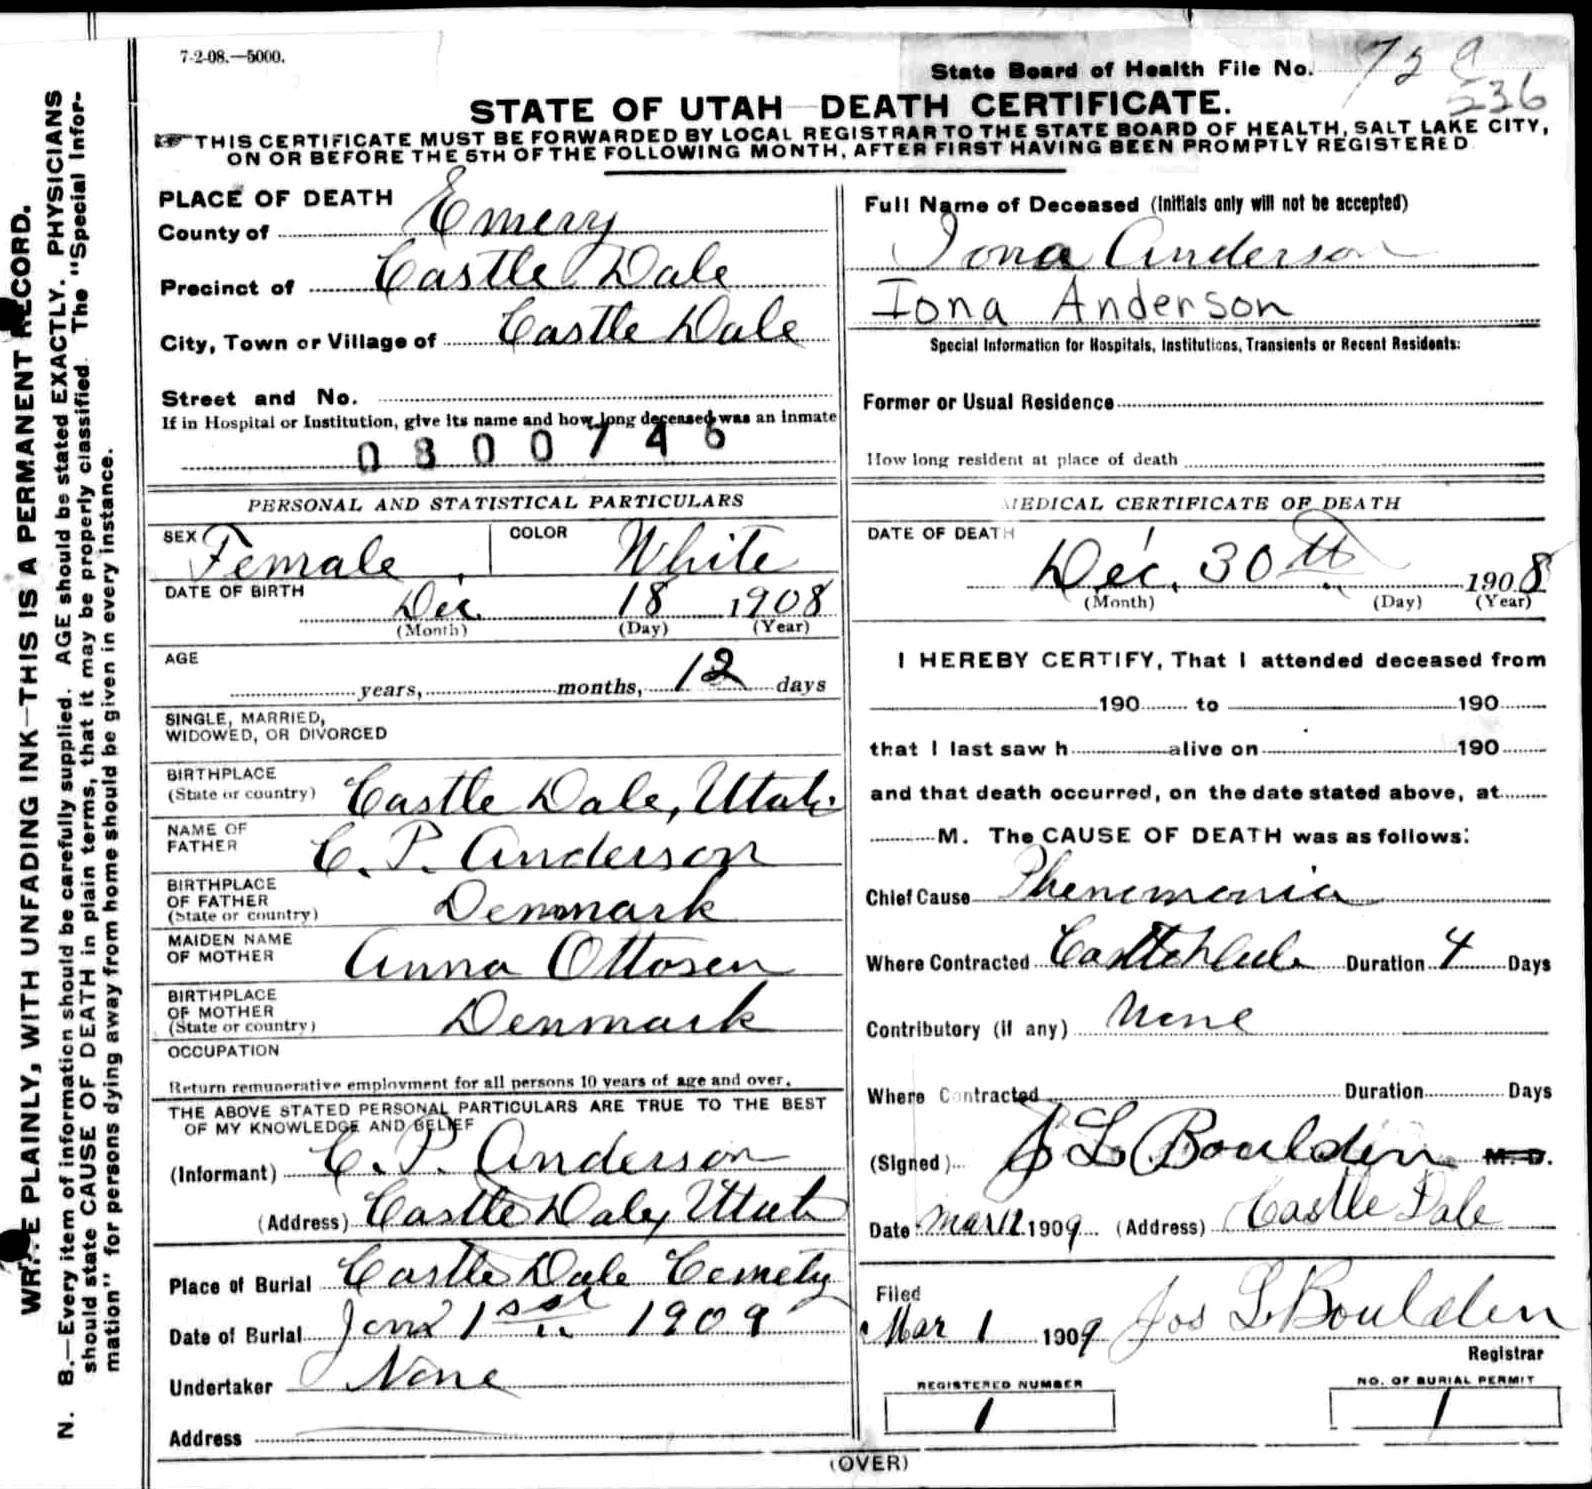 7-2-08.—5000.
State Board of Health File No.
236
STATE OF UTAH—DEATH CERTIFICATE.
THIS CERTIFICATE MUST BE FORWARDED BY LOCAL REGISTRAR TO THE STATE BOARD OF HEALTH, SALT LAKE CITY,
ON OR BEFORE THE 5TH OF THE FOLLOWING MONTH, AFTER FIRST HAVING BEEN PROMPTLY REGISTERED.
WRITE PLAINLY, WITH UNFADING INK—THIS IS A PERMANENT RECORD.
N. B.—Every item of information should be carefully supplied. AGE should be stated EXACTLY. PHYSICIANS
should state CAUSE OF DEATH in plain terms, that it may be properly classified. The "Special Infor-
mation" for persons dying away from home should be given in every instance.
PLACE OF DEATH
County of Emery
Precinct of Castle Dale
City, Town or Village of Castle Dale
Street and No.
If in Hospital or Institution, give its name and how long deceased was an inmate
0800746
PERSONAL AND STATISTICAL PARTICULARS
SEX Female COLOR White
DATE OF BIRTH Dec. 18 1908
(Month) (Day) (Year)
AGE
years, months, 12 days
SINGLE, MARRIED,
WIDOWED, OR DIVORCED
BIRTHPLACE
(State or country) Castle Dale, Utah.
NAME OF
FATHER C. P. Anderson
BIRTHPLACE
OF FATHER
(State or country) Denmark
MAIDEN NAME
OF MOTHER Anna Ottosen
BIRTHPLACE
OF MOTHER
(State or country) Denmark
OCCUPATION
Return remunerative employment for all persons 10 years of age and over.
THE ABOVE STATED PERSONAL PARTICULARS ARE TRUE TO THE BEST
OF MY KNOWLEDGE AND BELIEF
(Informant) C. P. Anderson
(Address) Castle Dale, Utah
Place of Burial Castle Dale Cemety
Date of Burial 1st 1909
Undertaker None
Address
Full Name of Deceased (Initials only will not be accepted)
Iona Anderson
Iona Anderson
Special Information for Hospitals, Institutions, Transients or Recent Residents:
Former or Usual Residence
How long resident at place of death
MEDICAL CERTIFICATE OF DEATH
DATE OF DEATH
Dec. 30th 1908
(Month) (Day) (Year)
I HEREBY CERTIFY, That I attended deceased from
190 to 190
that I last saw h alive on 190
and that death occurred, on the date stated above, at
M. The CAUSE OF DEATH was as follows:
Chief Cause Phenomonia
Where Contracted Duration 4 Days
Contributory (if any) None
Where Contracted Duration Days
(Signed) J L Boulden M. D.
Date Mar 12 1909 (Address) Castle Dale
Filed
Mar 1 1909 Jos L Boulden
Registrar
REGISTERED NUMBER
1
NO. OF BURIAL PERMIT
1
(OVER)